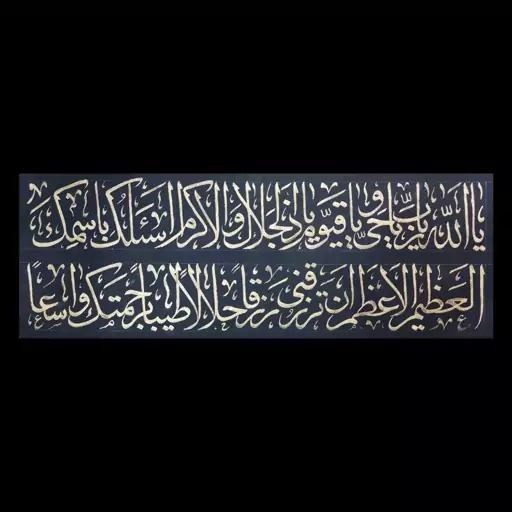 يا الله يا رب يا حي و يا قيوم يا ذالجلال والاكرام اسئلك باسمك
العظيم الاعظم ان ترزقنى رزقا حلالا طيبا برحمتك واسعا